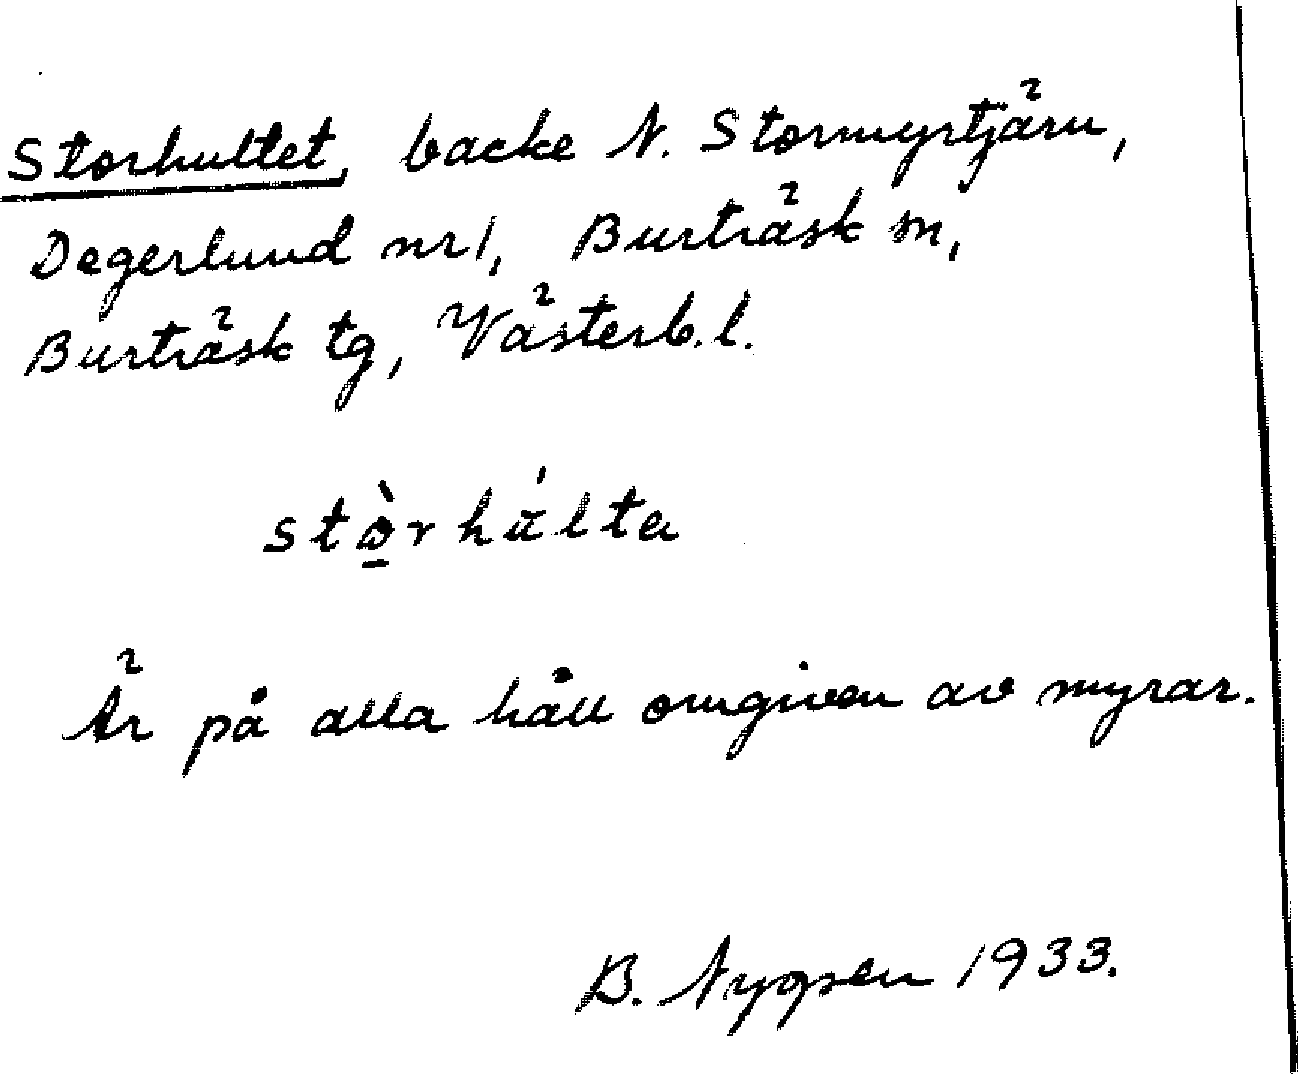 Storhultet, backe N. Stormyrtjärn,
Degerlund nr 1, Burträsk sn,
Burträsk tg, Västerb. l.
stò̠rhúlta
Är på alla håll omgiven av myrar.
B. 1933.